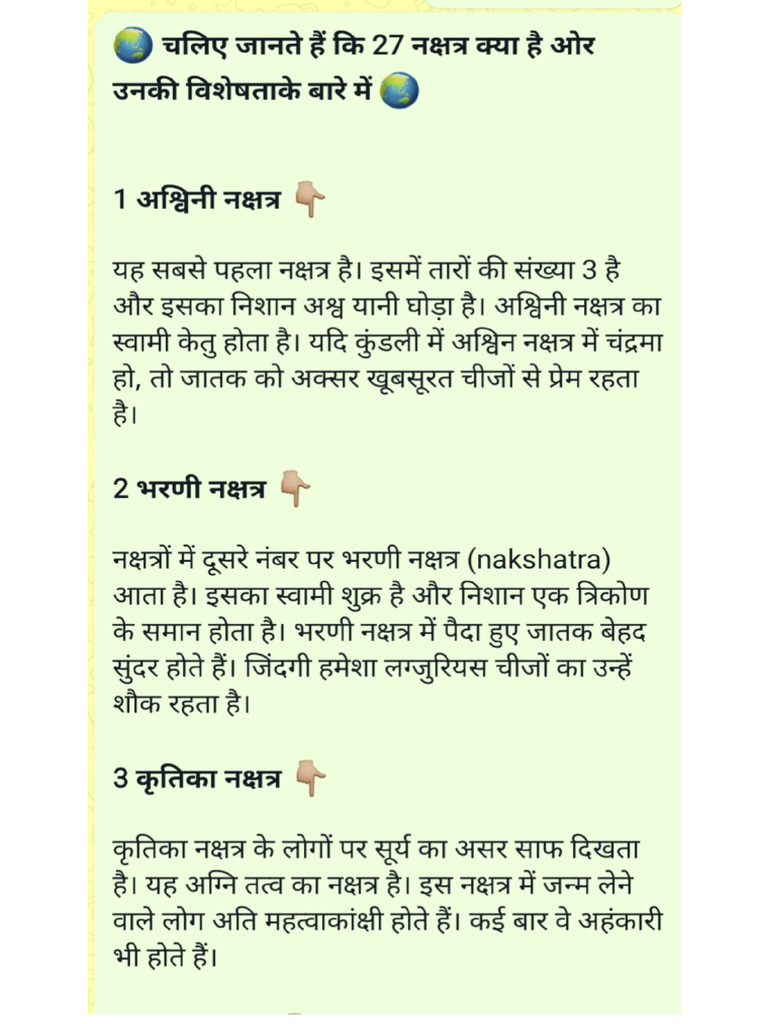 🌏 चलिए जानते हैं कि 27 नक्षत्र क्या है ओर
उनकी विशेषताके बारे में 🌏
1 अश्विनी नक्षत्र 👇🏼
यह सबसे पहला नक्षत्र है। इसमें तारों की संख्या 3 है
और इसका निशान अश्व यानी घोड़ा है। अश्विनी नक्षत्र का
स्वामी केतु होता है। यदि कुंडली में अश्विन नक्षत्र में चंद्रमा
हो, तो जातक को अक्सर खूबसूरत चीजों से प्रेम रहता
है।
2 भरणी नक्षत्र 👇🏼
नक्षत्रों में दूसरे नंबर पर भरणी नक्षत्र (nakshatra)
आता है। इसका स्वामी शुक्र है और निशान एक त्रिकोण
के समान होता है। भरणी नक्षत्र में पैदा हुए जातक बेहद
सुंदर होते हैं। जिंदगी हमेशा लग्जुरियस चीजों का उन्हें
शौक रहता है।
3 कृतिका नक्षत्र 👇🏼
कृतिका नक्षत्र के लोगों पर सूर्य का असर साफ दिखता
है। यह अग्नि तत्व का नक्षत्र है। इस नक्षत्र में जन्म लेने
वाले लोग अति महत्वाकांक्षी होते हैं। कई बार वे अहंकारी
भी होते हैं।